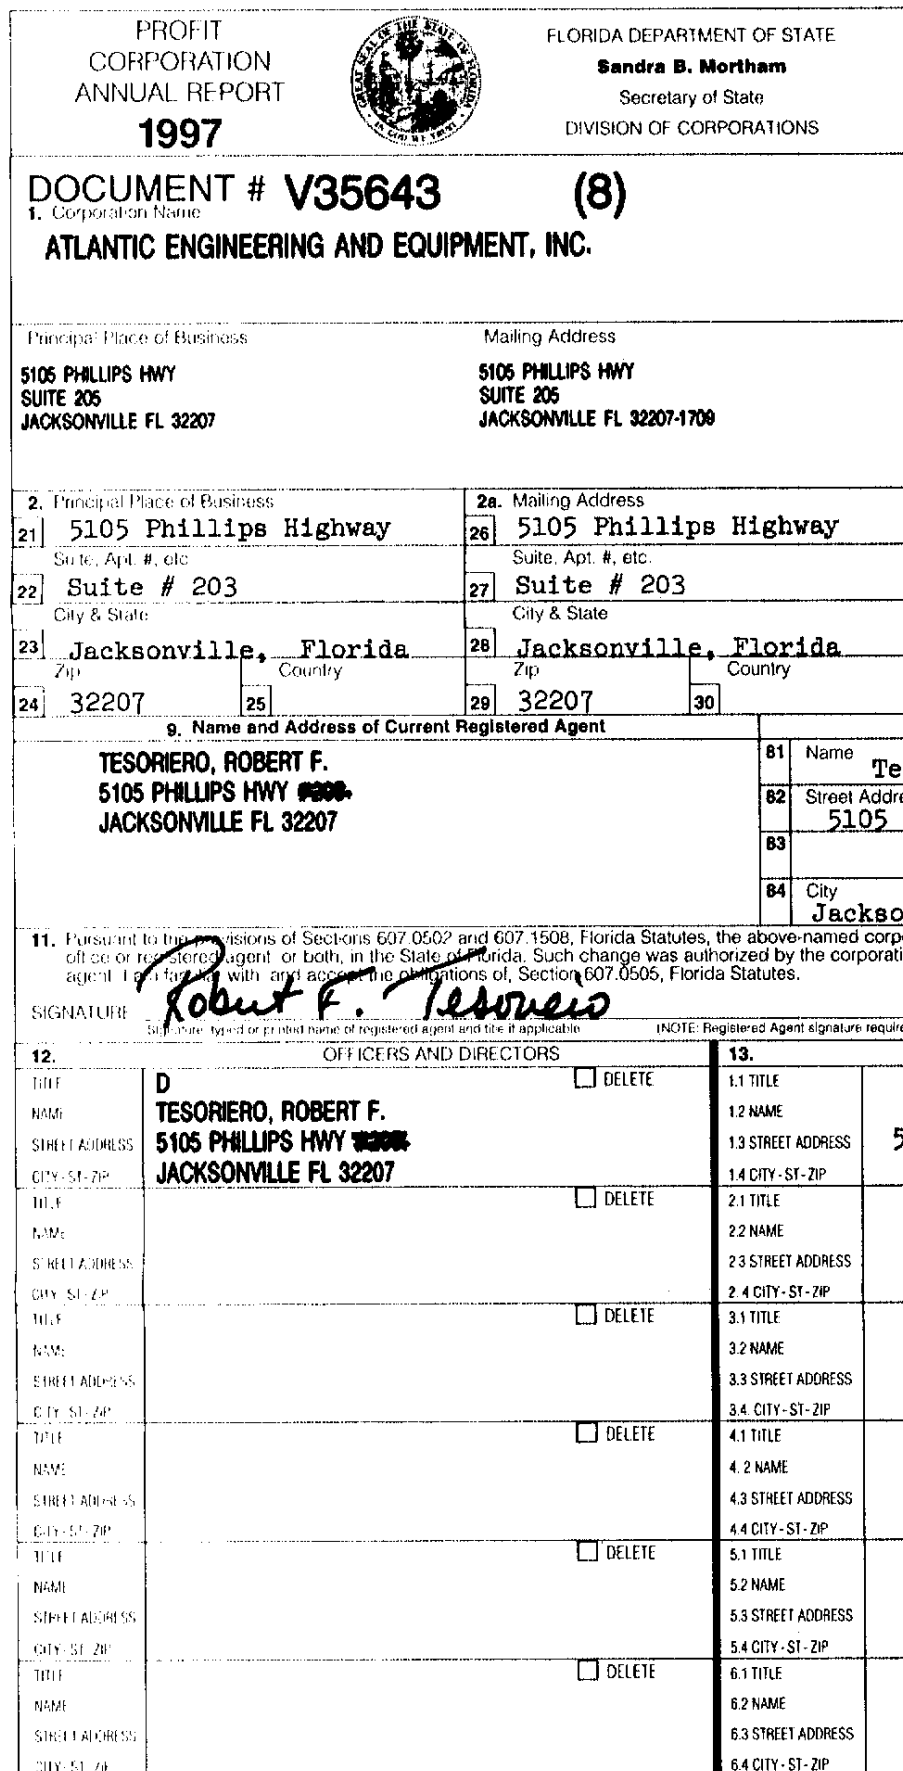 PROFIT
CORPORATION
ANNUAL REPORT
1997
GREAT SEAL OF THE STATE OF FLORIDA
IN GOD WE TRUST
FLORIDA DEPARTMENT OF STATE
Sandra B. Mortham
Secretary of State
DIVISION OF CORPORATIONS
DOCUMENT # V35643 (8)
1. Corporation Name
ATLANTIC ENGINEERING AND EQUIPMENT, INC.
Principal Place of Business
5105 PHILLIPS HWY
SUITE 205
JACKSONVILLE FL 32207
Mailing Address
5105 PHILLIPS HWY
SUITE 205
JACKSONVILLE FL 32207-1709
2. Principal Place of Business
21 5105 Phillips Highway
Suite, Apt. #, etc
22 Suite # 203
City & State
23 Jacksonville, Florida
Zip Country
24 32207 25
2a. Mailing Address
26 5105 Phillips Highway
Suite, Apt. #, etc.
27 Suite # 203
City & State
28 Jacksonville, Florida
Zip Country
29 32207 30
9. Name and Address of Current Registered Agent
TESORIERO, ROBERT F.
5105 PHILLIPS HWY
JACKSONVILLE FL 32207
81 Name
Te
82 Street Addre
5105
83
84 City
Jackso
11. Pursuant to the provisions of Sections 607.0502 and 607.1508, Florida Statutes, the above-named corp
office or registered agent or both, in the State of Florida. Such change was authorized by the corporati
agent I am familiar with and accept the obligations of, Section 607.0505, Florida Statutes.
SIGNATURE Robert F. Tesoriero
Signature typed or printed name of registered agent and title if applicable (NOTE: Registered Agent signature require
12. OFFICERS AND DIRECTORS
TITLE D DELETE
NAME TESORIERO, ROBERT F.
STREET ADDRESS 5105 PHILLIPS HWY
CITY-ST-ZIP JACKSONVILLE FL 32207
TITLE DELETE
NAME
STREET ADDRESS
CITY-ST-ZIP
TITLE DELETE
NAME
STREET ADDRESS
CITY-ST-ZIP
TITLE DELETE
NAME
STREET ADDRESS
CITY-ST-ZIP
TITLE DELETE
NAME
STREET ADDRESS
CITY-ST-ZIP
TITLE DELETE
NAME
STREET ADDRESS
CITY-ST-ZIP
13.
1.1 TITLE
1.2 NAME
1.3 STREET ADDRESS 5
1.4 CITY-ST-ZIP
2.1 TITLE
2.2 NAME
2.3 STREET ADDRESS
2.4 CITY-ST-ZIP
3.1 TITLE
3.2 NAME
3.3 STREET ADDRESS
3.4. CITY-ST-ZIP
4.1 TITLE
4.2 NAME
4.3 STREET ADDRESS
4.4 CITY-ST-ZIP
5.1 TITLE
5.2 NAME
5.3 STREET ADDRESS
5.4 CITY-ST-ZIP
6.1 TITLE
6.2 NAME
6.3 STREET ADDRESS
6.4 CITY-ST-ZIP